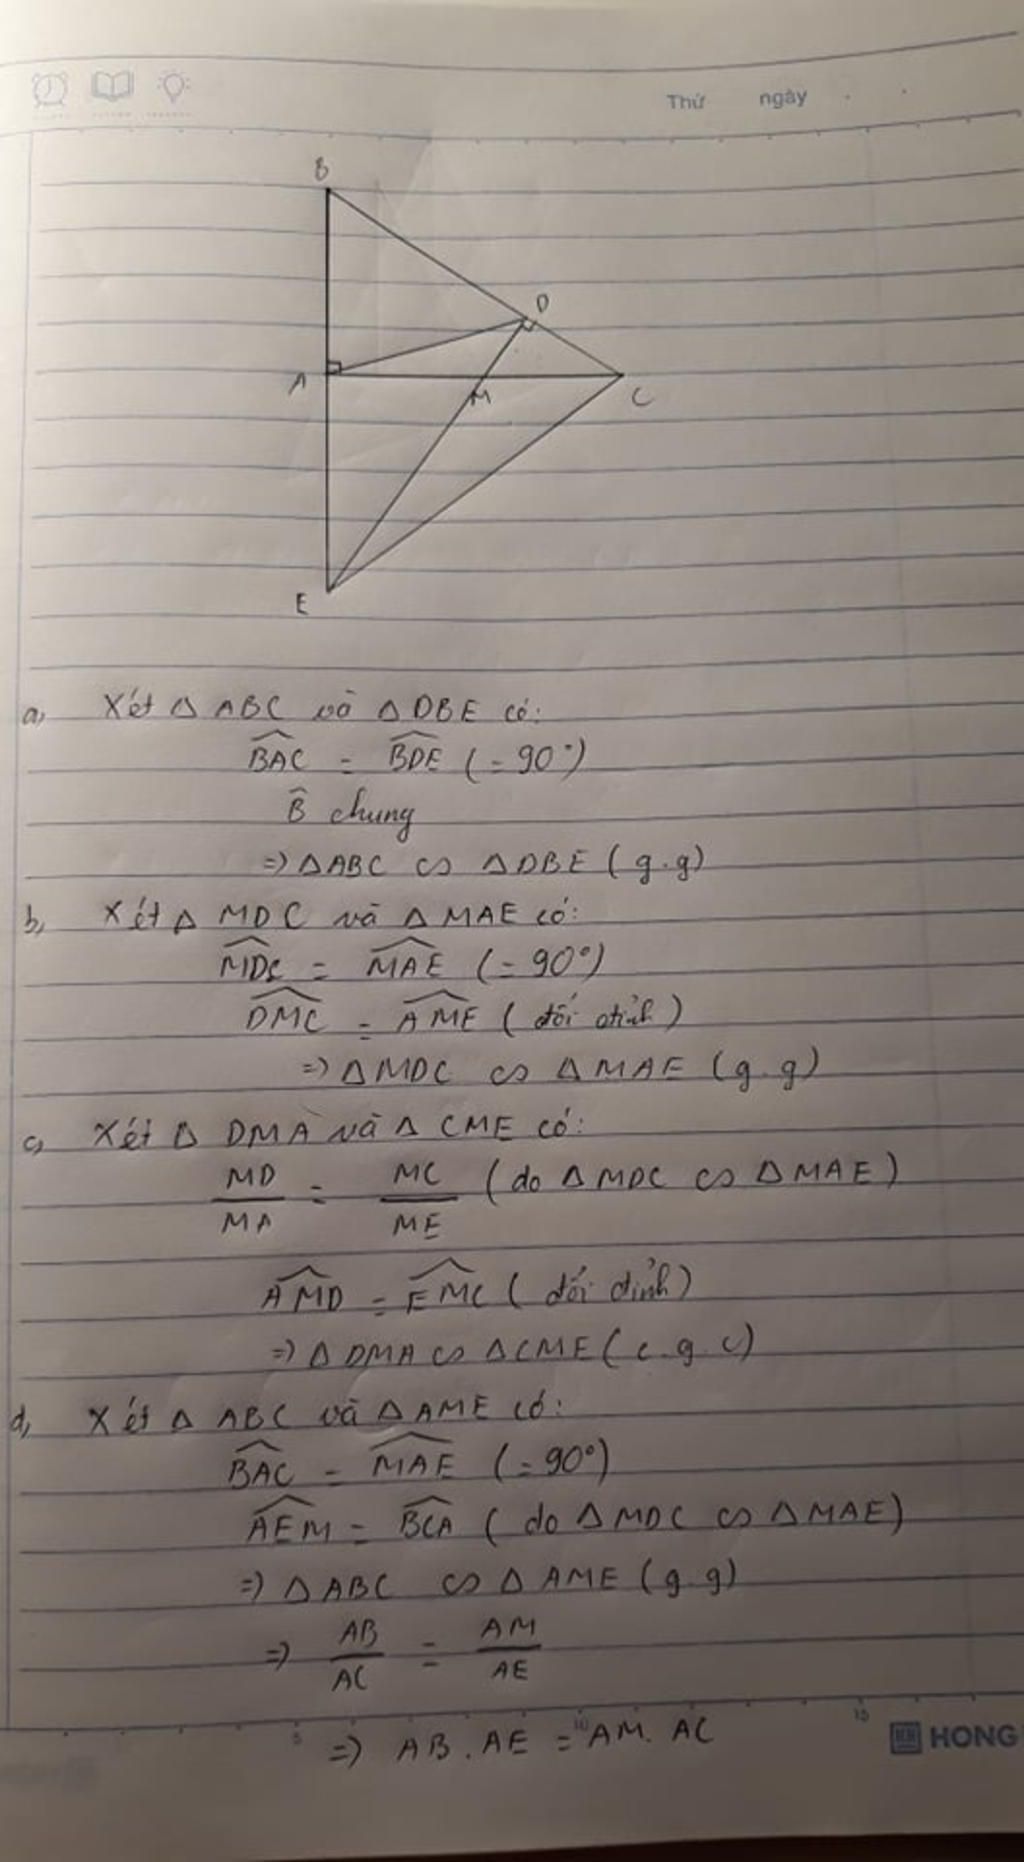 Thứ ngày
B
D
A
M
C
E
a, Xét △ ABC và △ DBE có:
$\widehat{BAC} = \widehat{BDE}$ (= 90°)
$\widehat{B}$ chung
=> △ABC ∽ △DBE (g.g)
b, Xét △ MDC và △ MAE có:
$\widehat{MDC} = \widehat{MAE}$ (= 90°)
$\widehat{DMC} = \widehat{AME}$ (đối đỉnh)
=> △MDC ∽ △MAE (g.g)
c, Xét △ DMA và △ CME có:
$\frac{MD}{MA} = \frac{MC}{ME}$ (do △MDC ∽ △MAE)
$\widehat{AMD} = \widehat{EMC}$ (đối đỉnh)
=> △DMA ∽ △CME (c.g.c)
d, Xét △ ABC và △ AME có:
$\widehat{BAC} = \widehat{MAE}$ (= 90°)
$\widehat{AEM} = \widehat{BCA}$ (do △MDC ∽ △MAE)
=> △ABC ∽ △AME (g.g)
=> $\frac{AB}{AC} = \frac{AM}{AE}$
5 10 15
=> AB.AE = AM.AC
HONG